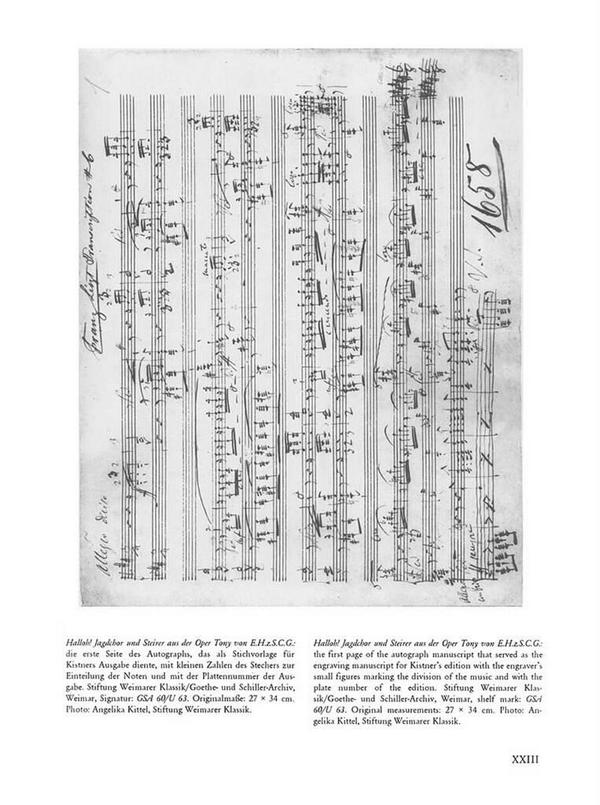 Allegro deciso
Franz Liszt Transcription
marcato
V. S.
1658
Halloh! Jagdchor und Steirer aus der Oper Tony von E.H.z.S.C.G.:
die erste Seite des Autographs, das als Stichvorlage für
Kistners Ausgabe diente, mit kleinen Zahlen des Stechers zur
Einteilung der Noten und mit der Plattennummer der Aus-
gabe. Stiftung Weimarer Klassik/Goethe- und Schiller-Archiv,
Weimar, Signatur: GSA 60/U 63. Originalmaße: 27 × 34 cm.
Photo: Angelika Kittel, Stiftung Weimarer Klassik.
Halloh! Jagdchor und Steirer aus der Oper Tony von E.H.z.S.C.G.:
the first page of the autograph manuscript that served as the
engraving manuscript for Kistner's edition with the engraver's
small figures marking the division of the music and with the
plate number of the edition. Stiftung Weimarer Klas-
sik/Goethe- und Schiller-Archiv, Weimar, shelf mark: GSA
60/U 63. Original measurements: 27 × 34 cm. Photo: An-
gelika Kittel, Stiftung Weimarer Klassik.
XXIII